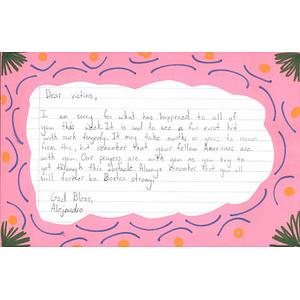 Dear victims,
I am sorry for what has happened to all of
you this week. It is sad to see a fun event hit
with such tragedy. It may take months or years to recover
from this, but remember that your fellow Americans are
with you. Our prayers are with you as you try to
get through this obstacle. Always remember that you all
will forever be Boston strong!
God Bless,
Alejandra